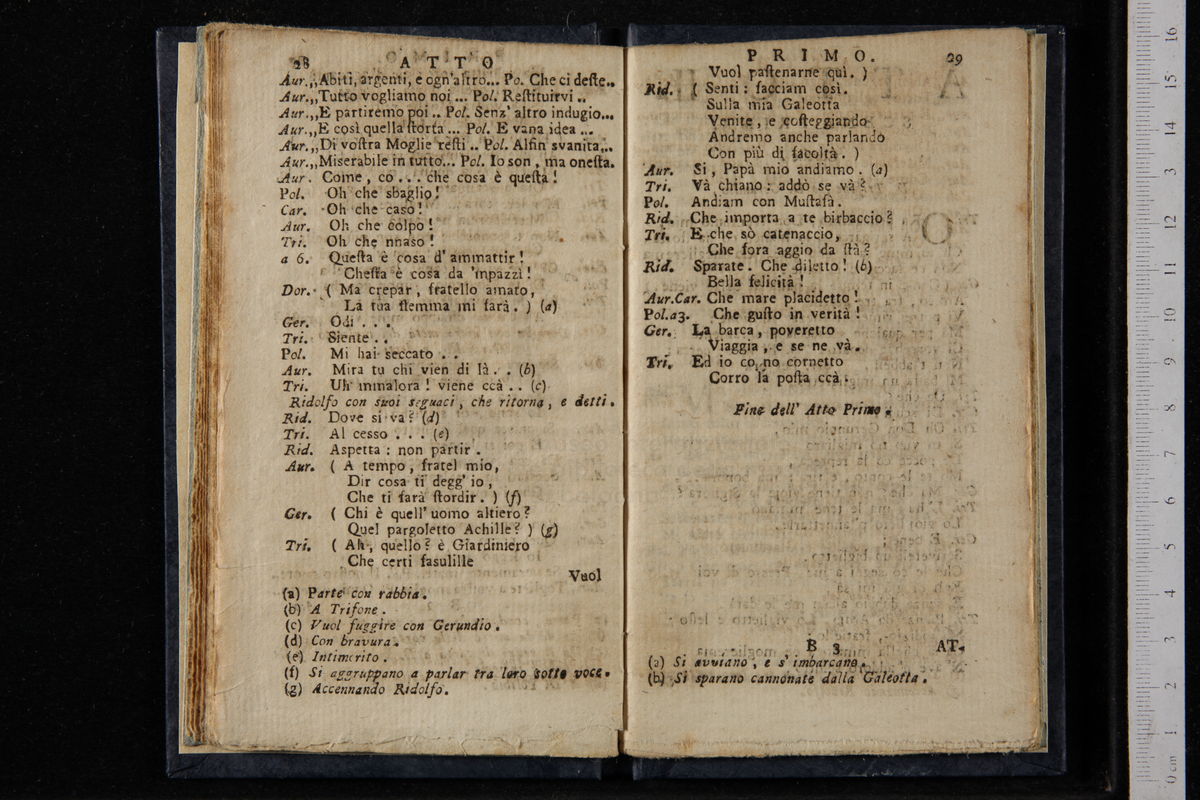 28 ATTO
Aur.,,Abiti, argenti, e ogn'altro... Po. Che ci deſte..
Aur.,,Tutto vogliamo noi ... Pol. Reſtituirvi ..
Aur.,,E partiremo poi .. Pol. Senz' altro indugio...
Aur.,,E così quella ſtorta ... Pol. E vana idea ...
Aur.,,Di voſtra Moglie reſti .. Pol. Alfin svanita...
Aur.,,Miserabile in tutto... Pol. Io son, ma oneſta.
Aur. Come, co . . . che cosa è queſta!
Pol. Oh che sbaglio!
Car. Oh che caso!
Aur. Oh che colpo!
Tri. Oh che nnaso!
a 6. Queſta è cosa d' ammattir!
Cheſta è cosa da 'mpazzì!
Dor. ( Ma crepar, fratello amato,
La tua flemma mi farà. ) (a)
Ger. Odi . . .
Tri. Siente . .
Pol. Mi hai seccato . .
Aur. Mira tu chi vien di là . . (b)
Tri. Uh mmalora! viene ccà . . (c)
Ridolfo con suoi seguaci, che ritorna, e detti.
Rid. Dove si va? (d)
Tri. Al cesso . . . (e)
Rid. Aspetta : non partir.
Aur. ( A tempo, fratel mio,
Dir cosa ti degg' io,
Che ti farà ſtordir. ) (f)
Ger. ( Chi è quell' uomo altiero?
Quel pargoletto Achille? ) (g)
Tri. ( Ah, quello? è Giardiniero
Che certi fasulille
Vuol
(a) Parte con rabbia.
(b) A Trifone.
(c) Vuol fuggire con Gerundio.
(d) Con bravura.
(e) Intimorito.
(f) Si aggruppano a parlar tra loro sotto voce.
(g) Accennando Ridolfo.
PRIMO. 29
Vuol paſtenarne quì. )
Rid. ( Senti : facciam così.
Sulla mia Galeotta
Venite, e coſteggiando
Andremo anche parlando
Con più di facoltà. )
Aur. Si, Papà mio andiamo. (a)
Tri. Và chiano : addò se và?
Pol. Andiam con Muſtafà.
Rid. Che importa a te birbaccio?
Tri. E che sò catenaccio,
Che fora aggio da ſtà?
Rid. Sparate. Che diletto! (b)
Bella felicità!
Aur.Car. Che mare placidetto!
Pol.a3. Che guſto in verità!
Ger. La barca, poveretto
Viaggia, e se ne và.
Tri. Ed io co no cornetto
Corro la poſta ccà.
Fine dell' Atto Primo.
B 3 AT-
(a) Si avviano, e s' imbarcano.
(b) Si sparano cannonate dalla Galeotta.
0 cm 1 2 3 4 5 6 7 8 9 10 11 12 13 14 15 16